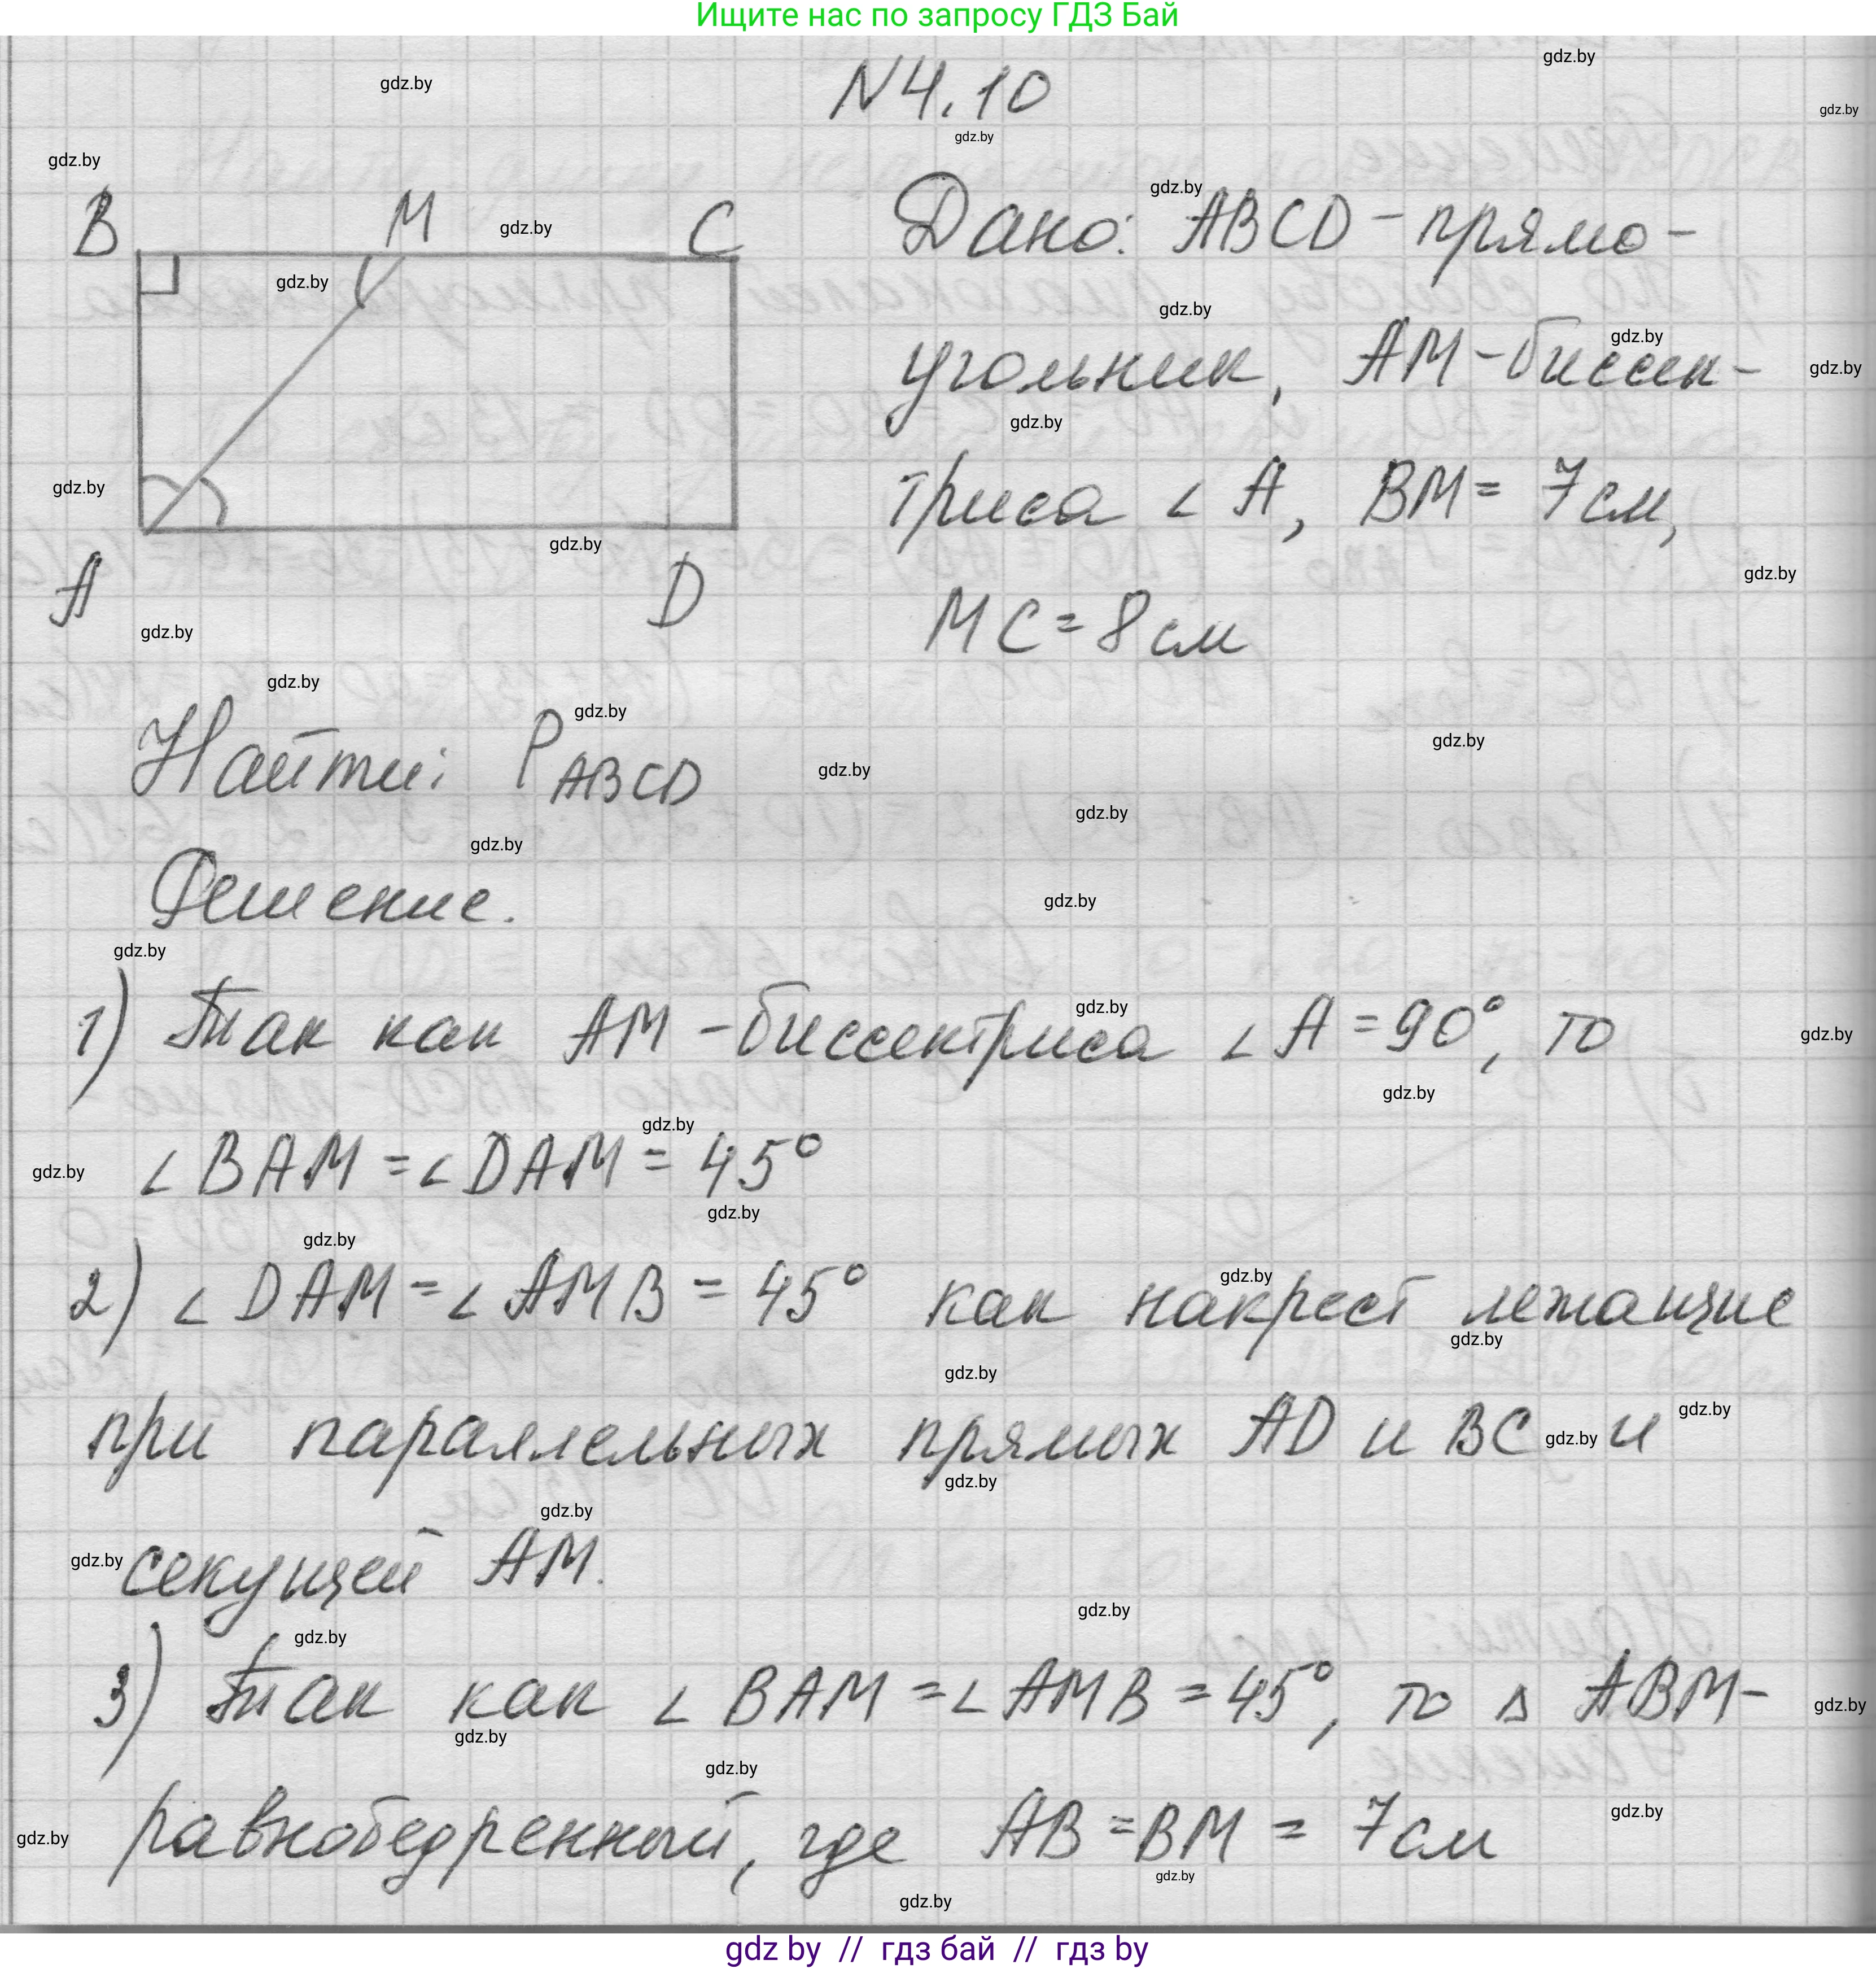 Ищите нас по запросу ГДЗ Бай
N4.10
B M C
A D
Дано: ABCD - прямо-
угольник, AM - биссек-
триса ∠ A, BM = 7 см,
MC = 8 см
Найти: P ABCD
Решение.
1) Так как AM - биссектриса ∠ A = 90°, то
∠ BAM = ∠ DAM = 45°
2) ∠ DAM = ∠ AMB = 45° как накрест лежащие
при параллельных прямых AD и BC и
секущей AM.
3) Так как ∠ BAM = ∠ AMB = 45°, то Δ ABM -
равнобедренный, где AB = BM = 7 см
gdz by // гдз бай // гдз by